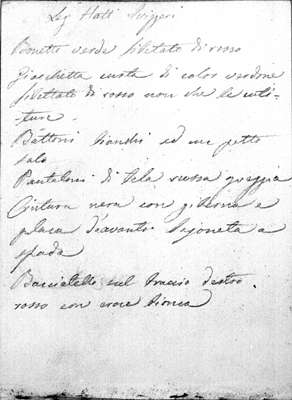 Leg Itali Svizzeri
Bonetto verde filettato di rosso
Giacchetta corta di color verdone
filettato di rosso non che le cuci-
ture.
Bottoni bianchi ed un petto
solo
Pantaloni di tela russa greggia
Cintura nera con giberna e
placca d'avanti. Bajoneta a
spada
Bracciatello sul braccio destro.
rosso con croce bianca